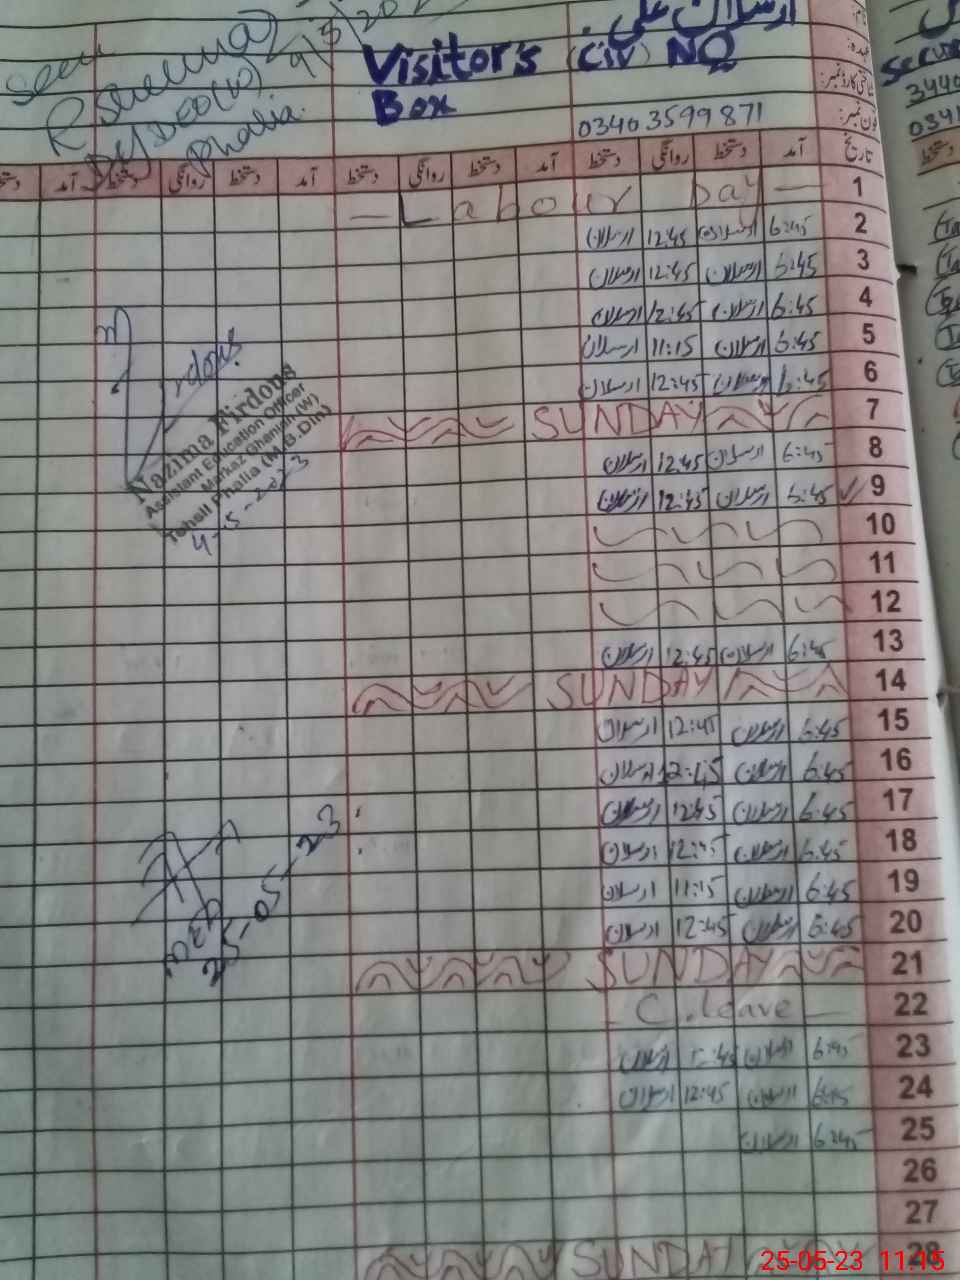 Seen
9/5/20
Dy DEO (W)
Phalia.
ارسلان علی
Visitor's (CIV) NQ
Box
03403599871
تاریخ آمد دستخط روانگی دستخط آمد دستخط روانگی دستخط آمد دستخط روانگی دستخط آمد
1 — Labour Day —
2 6:45 ارسلان 12:45 ارسلان
3 6:45 ارسلان 12:45 ارسلان
4 6:45 ارسلان 12:45 ارسلان
5 6:45 ارسلان 11:15 ارسلان
6 6:45 ارسلان 12:45 ارسلان
7 SUNDAY
8 6:45 ارسلان 12:45 ارسلان
9 6:45 ارسلان 12:45 ارسلان
10
11
12
13 6:45 ارسلان 12:45 ارسلان
14 SUNDAY
15 6:45 ارسلان 12:45 ارسلان
16 6:45 ارسلان 12:45 ارسلان
17 6:45 ارسلان 12:45 ارسلان
18 6:45 ارسلان 12:45 ارسلان
19 6:45 ارسلان 11:15 ارسلان
20 6:45 ارسلان 12:45 ارسلان
21 SUNDAY
22 C.leave
23 6:45 ارسلان 12:45 ارسلان
24 6:45 ارسلان 12:45 ارسلان
25 6:45 ارسلان
26
27
28 SUNDAY
Nazima Firdous
Assistant Education Officer
Markaz Ghanian (W)
Tehsil Phalia (M.B.Din)
4-5-2023
25-05-23
25-05-23 11:15